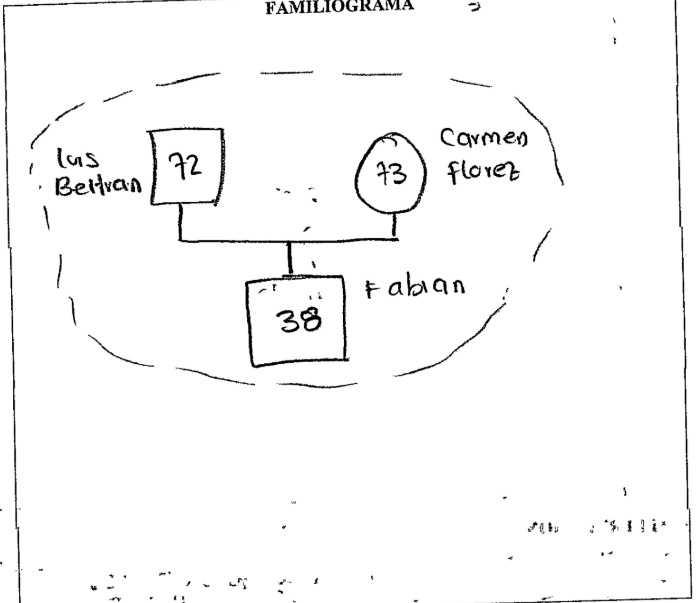 FAMILIOGRAMA
luis
Beltran
72
73
Carmen
florez
38
Fabian